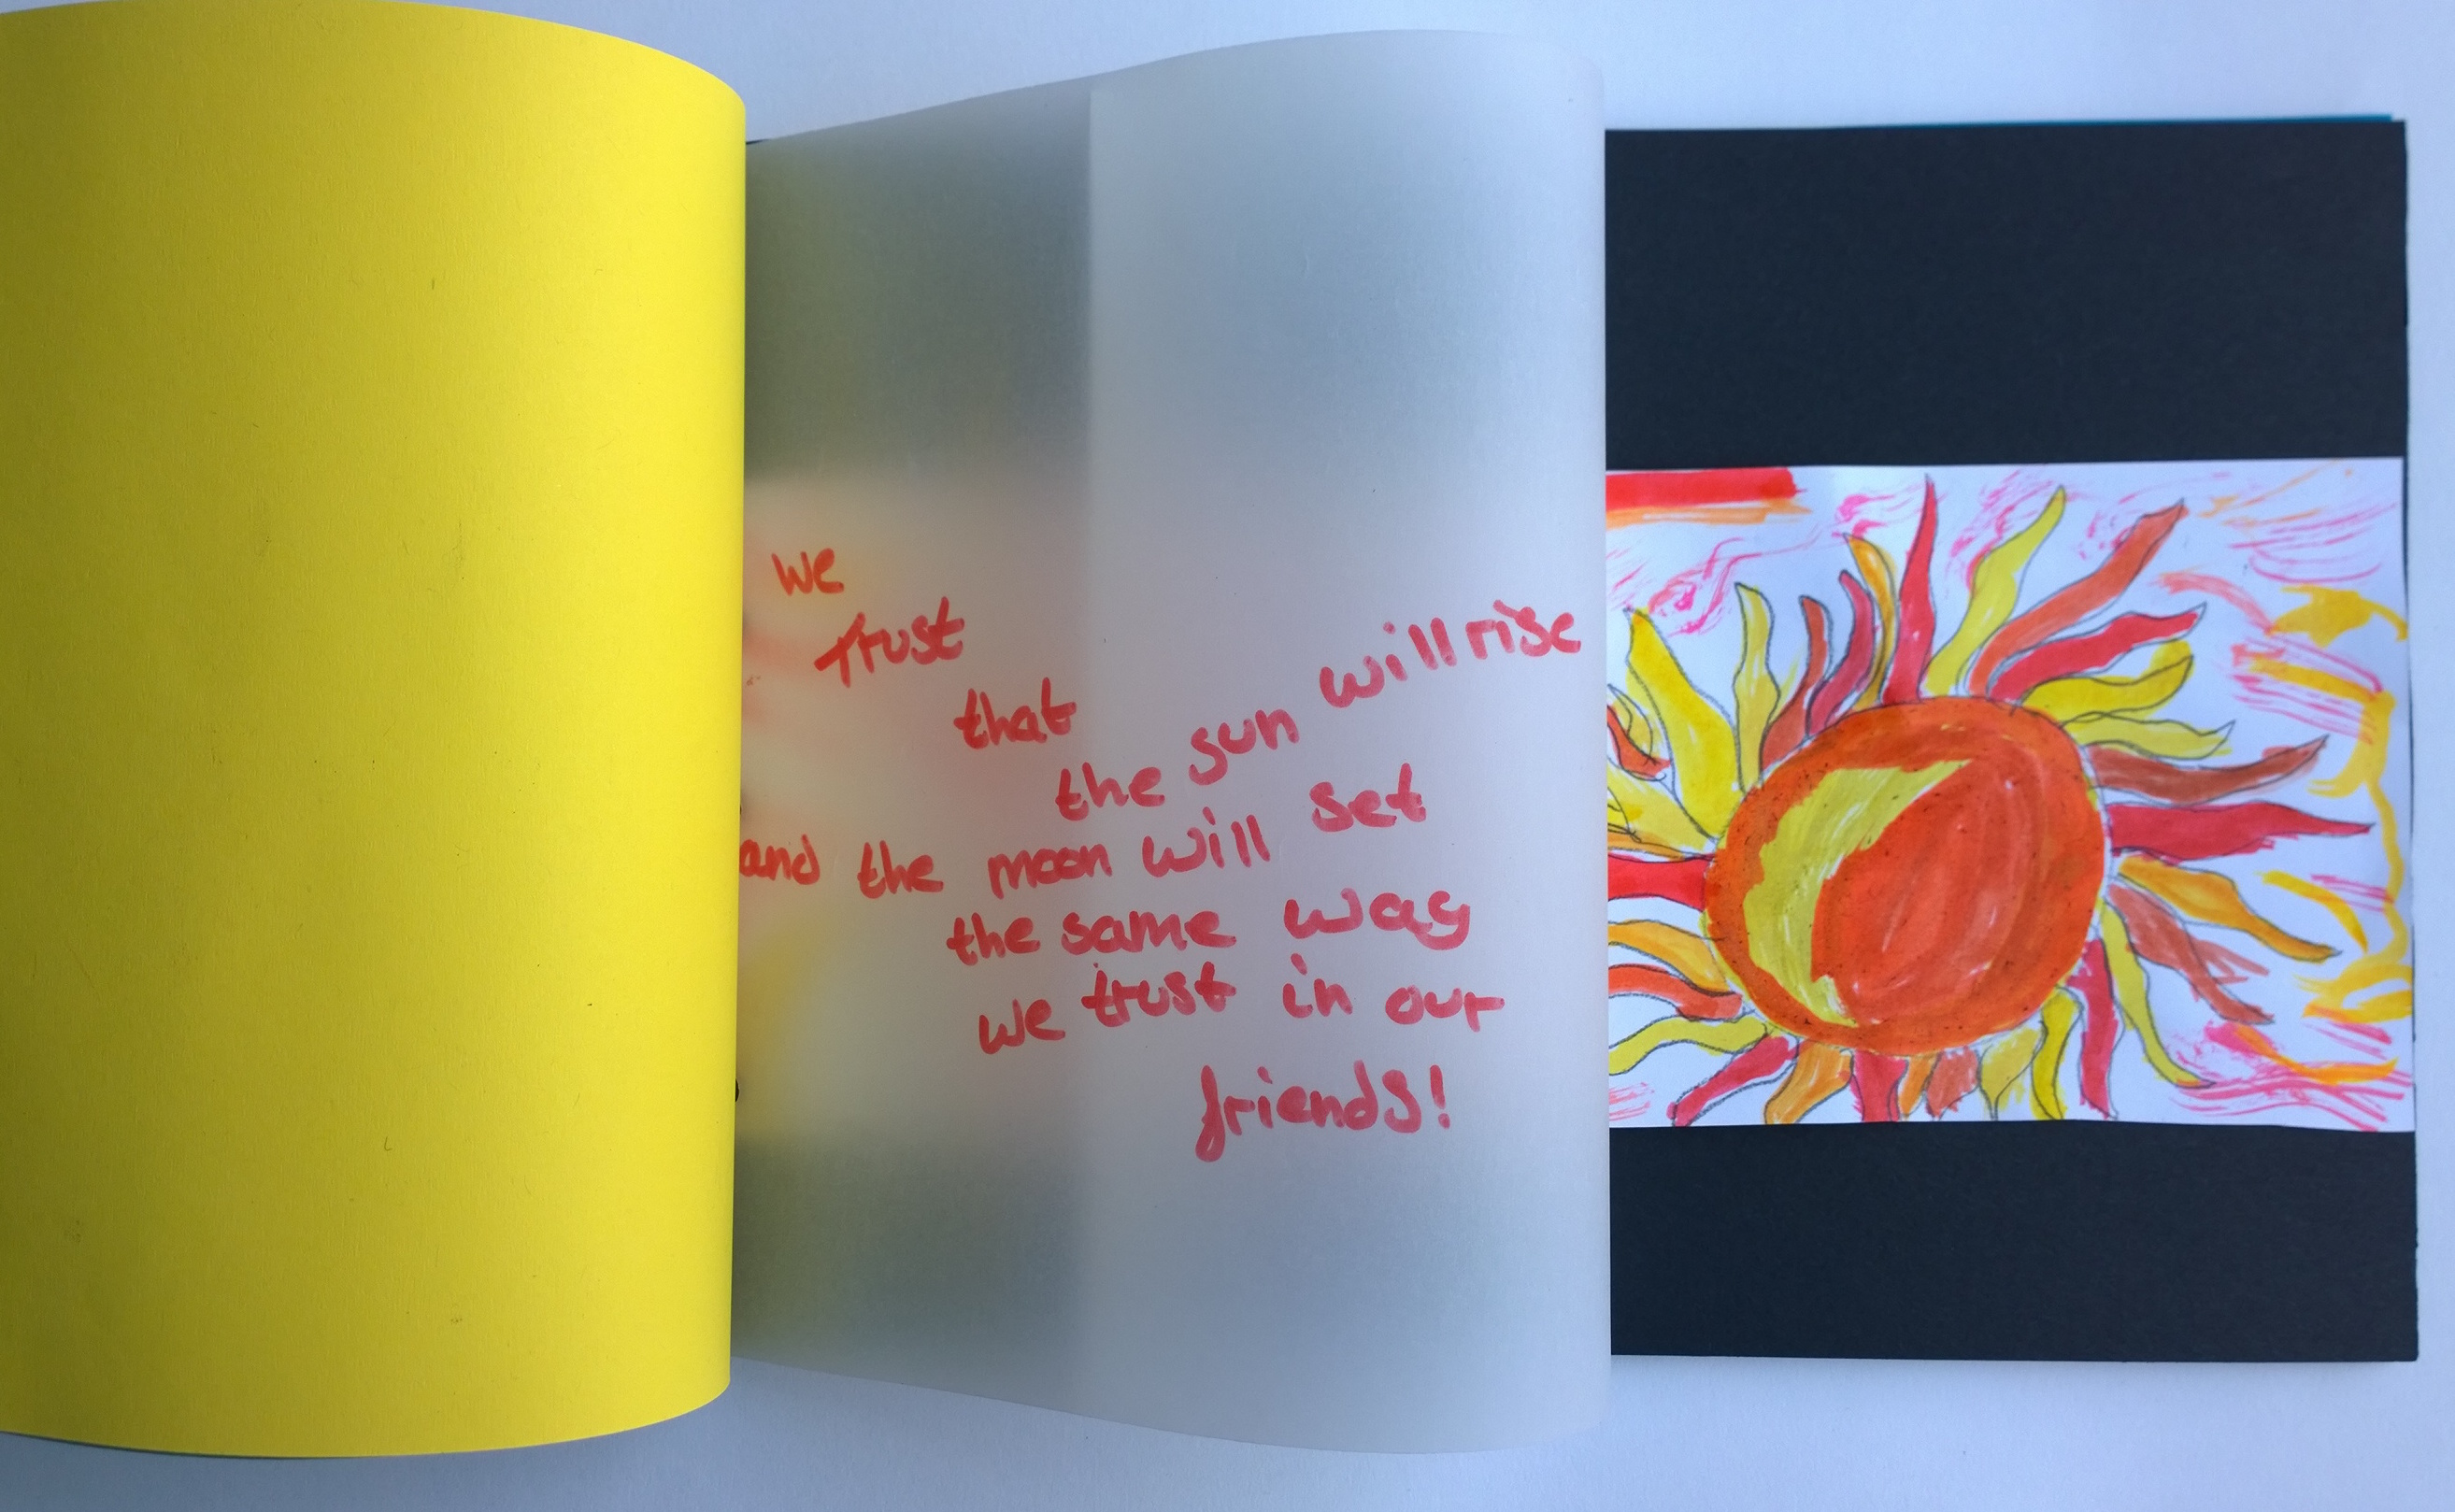 we
Trust
that
the sun will rise
and the moon will set
the same way
we trust in our
friends!